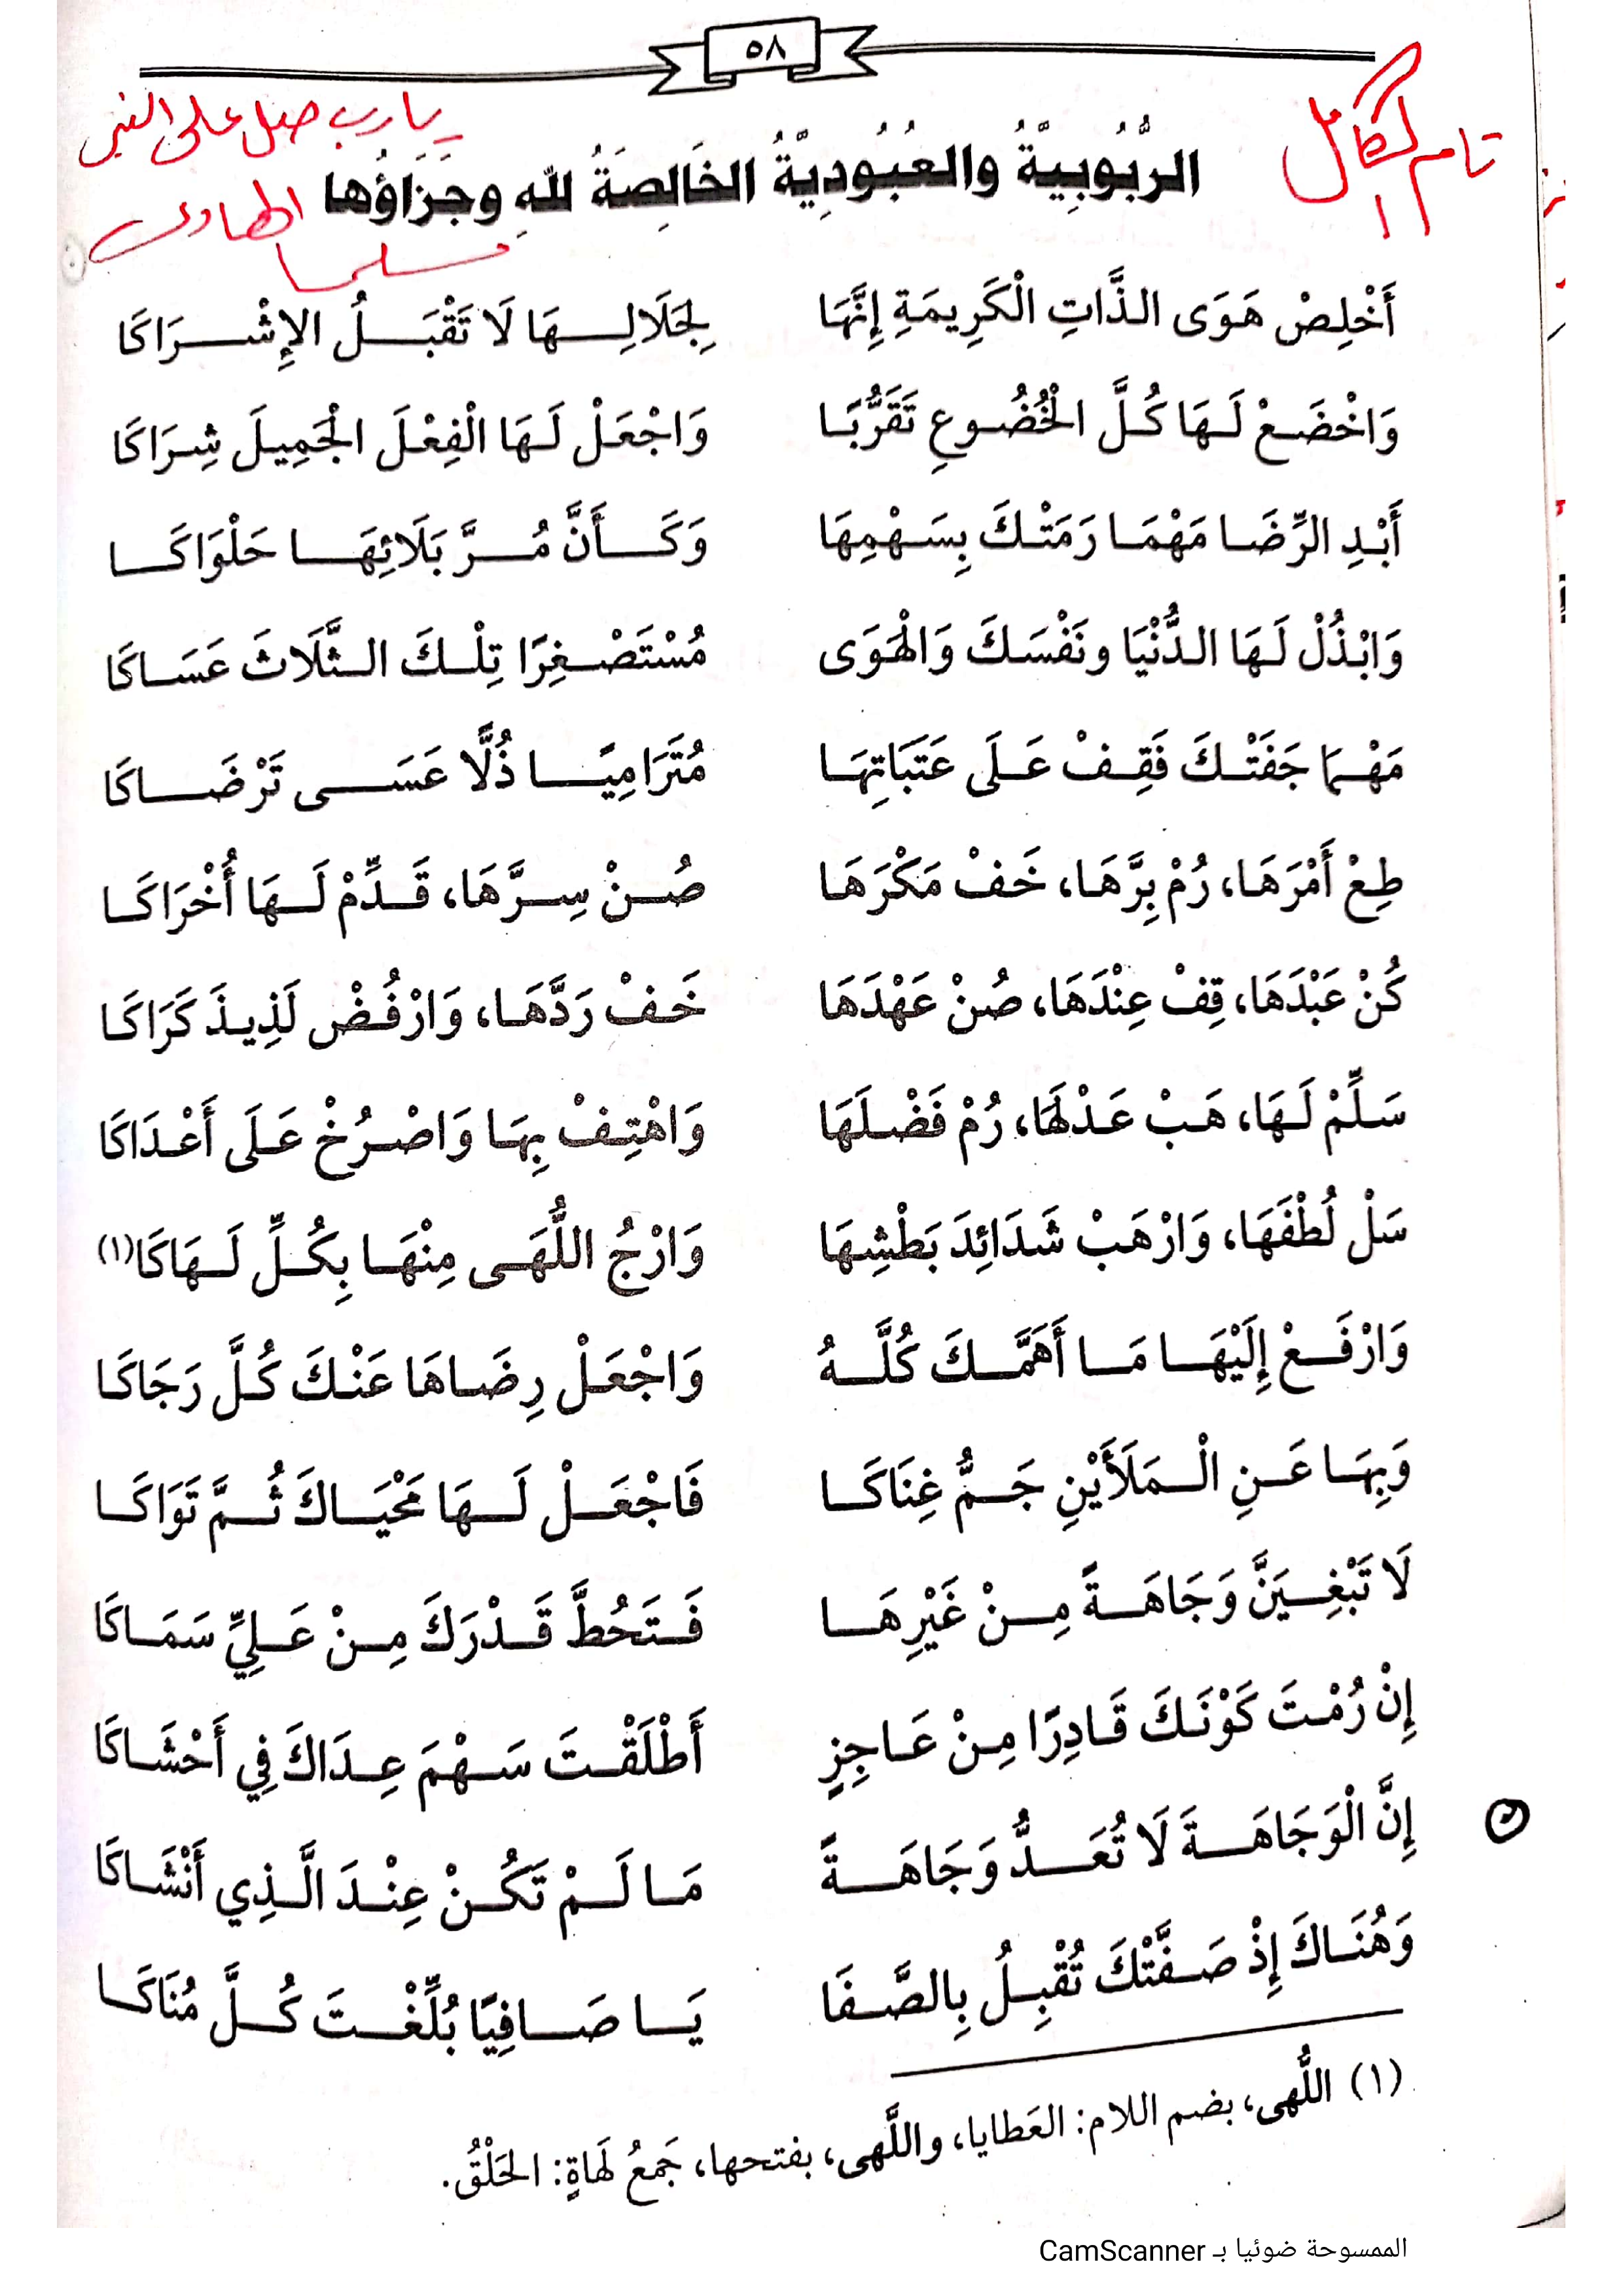 ٥٨
تام الكامل
يا رب صل على النبي
الرُّبُوبِيَّةُ والعُبُودِيَّةُ الخَالِصَةُ للهِ وجَزَاؤُها
الهادي
مسلما
أَخْلِصْ هَوَى الذَّاتِ الْكَرِيمَةِ إِنَّهَا لِجَلَالِهَا لَا تَقْبَلُ الإِشْرَاكَا
وَاخْضَعْ لَهَا كُلَّ الْخُضُوعِ تَقَرُّبًا وَاجْعَلْ لَهَا الْفِعْلَ الْجَمِيلَ شِرَاكَا
أَبْدِ الرِّضَا مَهْمَا رَمَتْكَ بِسَهْمِهَا وَكَأَنَّ مُرَّ بَلَائِهَا حَلْوَاكَا
وَابْذُلْ لَهَا الدُّنْيَا ونَفْسَكَ وَالْهَوَى مُسْتَصْغِرًا تِلْكَ الثَّلَاثَ عَسَاكَا
مَهْمَا جَفَتْكَ فَقِفْ عَلَى عَتَبَاتِهَا مُتَرَامِيًا ذُلًّا عَسَى تَرْضَاكَا
طِعْ أَمْرَهَا، رُمْ بِرَّهَا، خَفْ مَكْرَهَا صُنْ سِرَّهَا، قَدِّمْ لَهَا أُخْرَاكَا
كُنْ عَبْدَهَا، قِفْ عِنْدَهَا، صُنْ عَهْدَهَا خَفْ رَدَّهَا، وَارْفُضْ لَذِيذَ كَرَاكَا
سَلِّمْ لَهَا، هَبْ عَدْلَهَا، رُمْ فَضْلَهَا وَاهْتِفْ بِهَا وَاصْرُخْ عَلَى أَعْدَاكَا
سَلْ لُطْفَهَا، وَارْهَبْ شَدَائِدَ بَطْشِهَا وَارْجُ اللُّهَى مِنْهَا بِكُلِّ لَهَاكَا(١)
وَارْفَعْ إِلَيْهَا مَا أَهَمَّكَ كُلَّهُ وَاجْعَلْ رِضَاهَا عَنْكَ كُلَّ رَجَاكَا
وَبِهَا عَنِ الْمَلَأَيْنِ جَمُّ غِنَاكَا فَاجْعَلْ لَهَا مَحْيَاكَ ثُمَّ تَوَاكَا
لَا تَبْغِيَنَّ وَجَاهَةً مِنْ غَيْرِهَا فَتَحُطَّ قَدْرَكَ مِنْ عَلِيِّ سَمَاكَا
إِنْ رُمْتَ كَوْنَكَ قَادِرًا مِنْ عَاجِزٍ أَطْلَقْتَ سَهْمَ عِدَاكَ فِي أَحْشَاكَا
إِنَّ الْوَجَاهَةَ لَا تُعَدُّ وَجَاهَةً مَا لَمْ تَكُنْ عِنْدَ الَّذِي أَنْشَاكَا
وَهُنَاكَ إِذْ صَفَّتْكَ تُقْبِلُ بِالصَّفَا يَا صَافِيًا بُلِّغْتَ كُلَّ مُنَاكَا
(١) اللُّهى، بضم اللام: العَطايا، واللَّهى، بفتحها، جَمعُ لَهاةٍ: الحَلْقُ.
الممسوحة ضوئيا بـ CamScanner